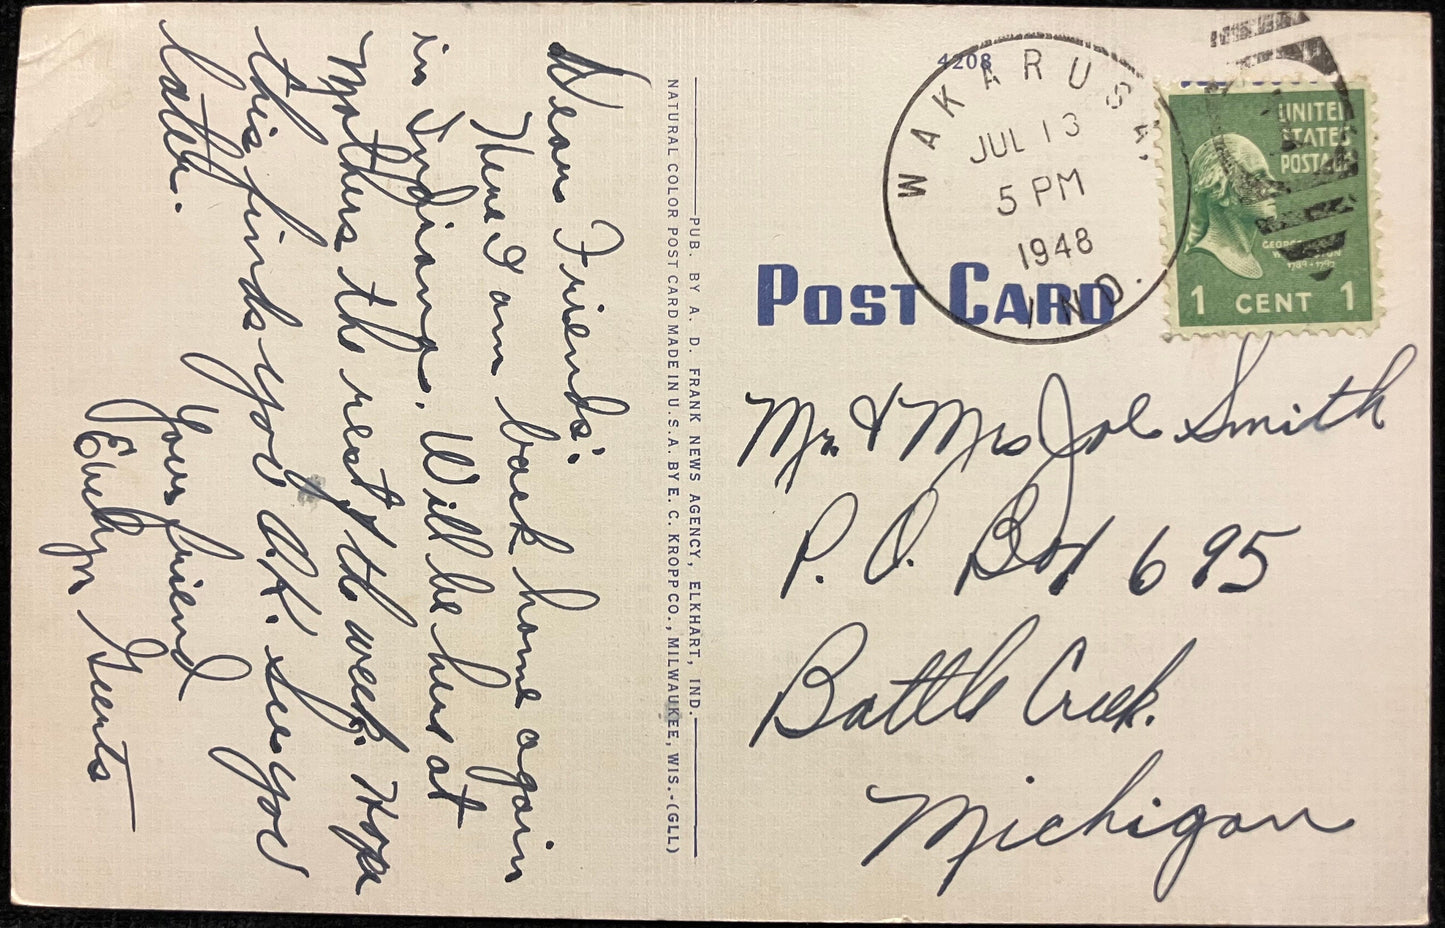 Dear Friends:
Here I am back home again
in Indiana. Will be here at
Mothers the rest of the week. Hope
this finds you O.K. see you
later.
Your friend
Evelyn
PUB. BY A. D. FRANK NEWS AGENCY, ELKHART, IND.
NATURAL COLOR POST CARD MADE IN U.S.A. BY E. C. KROPP CO., MILWAUKEE, WIS.-(GLL)
4208
WAKARUSA,
JUL 13
5 PM
1948
IND.
UNITED
STATES
POSTAGE
GEORGE WASHINGTON
1789-1797
1 CENT 1
POST CARD
Mr. & Mrs Joe Smith
P. O. Box 695
Battle Creek.
Michigan